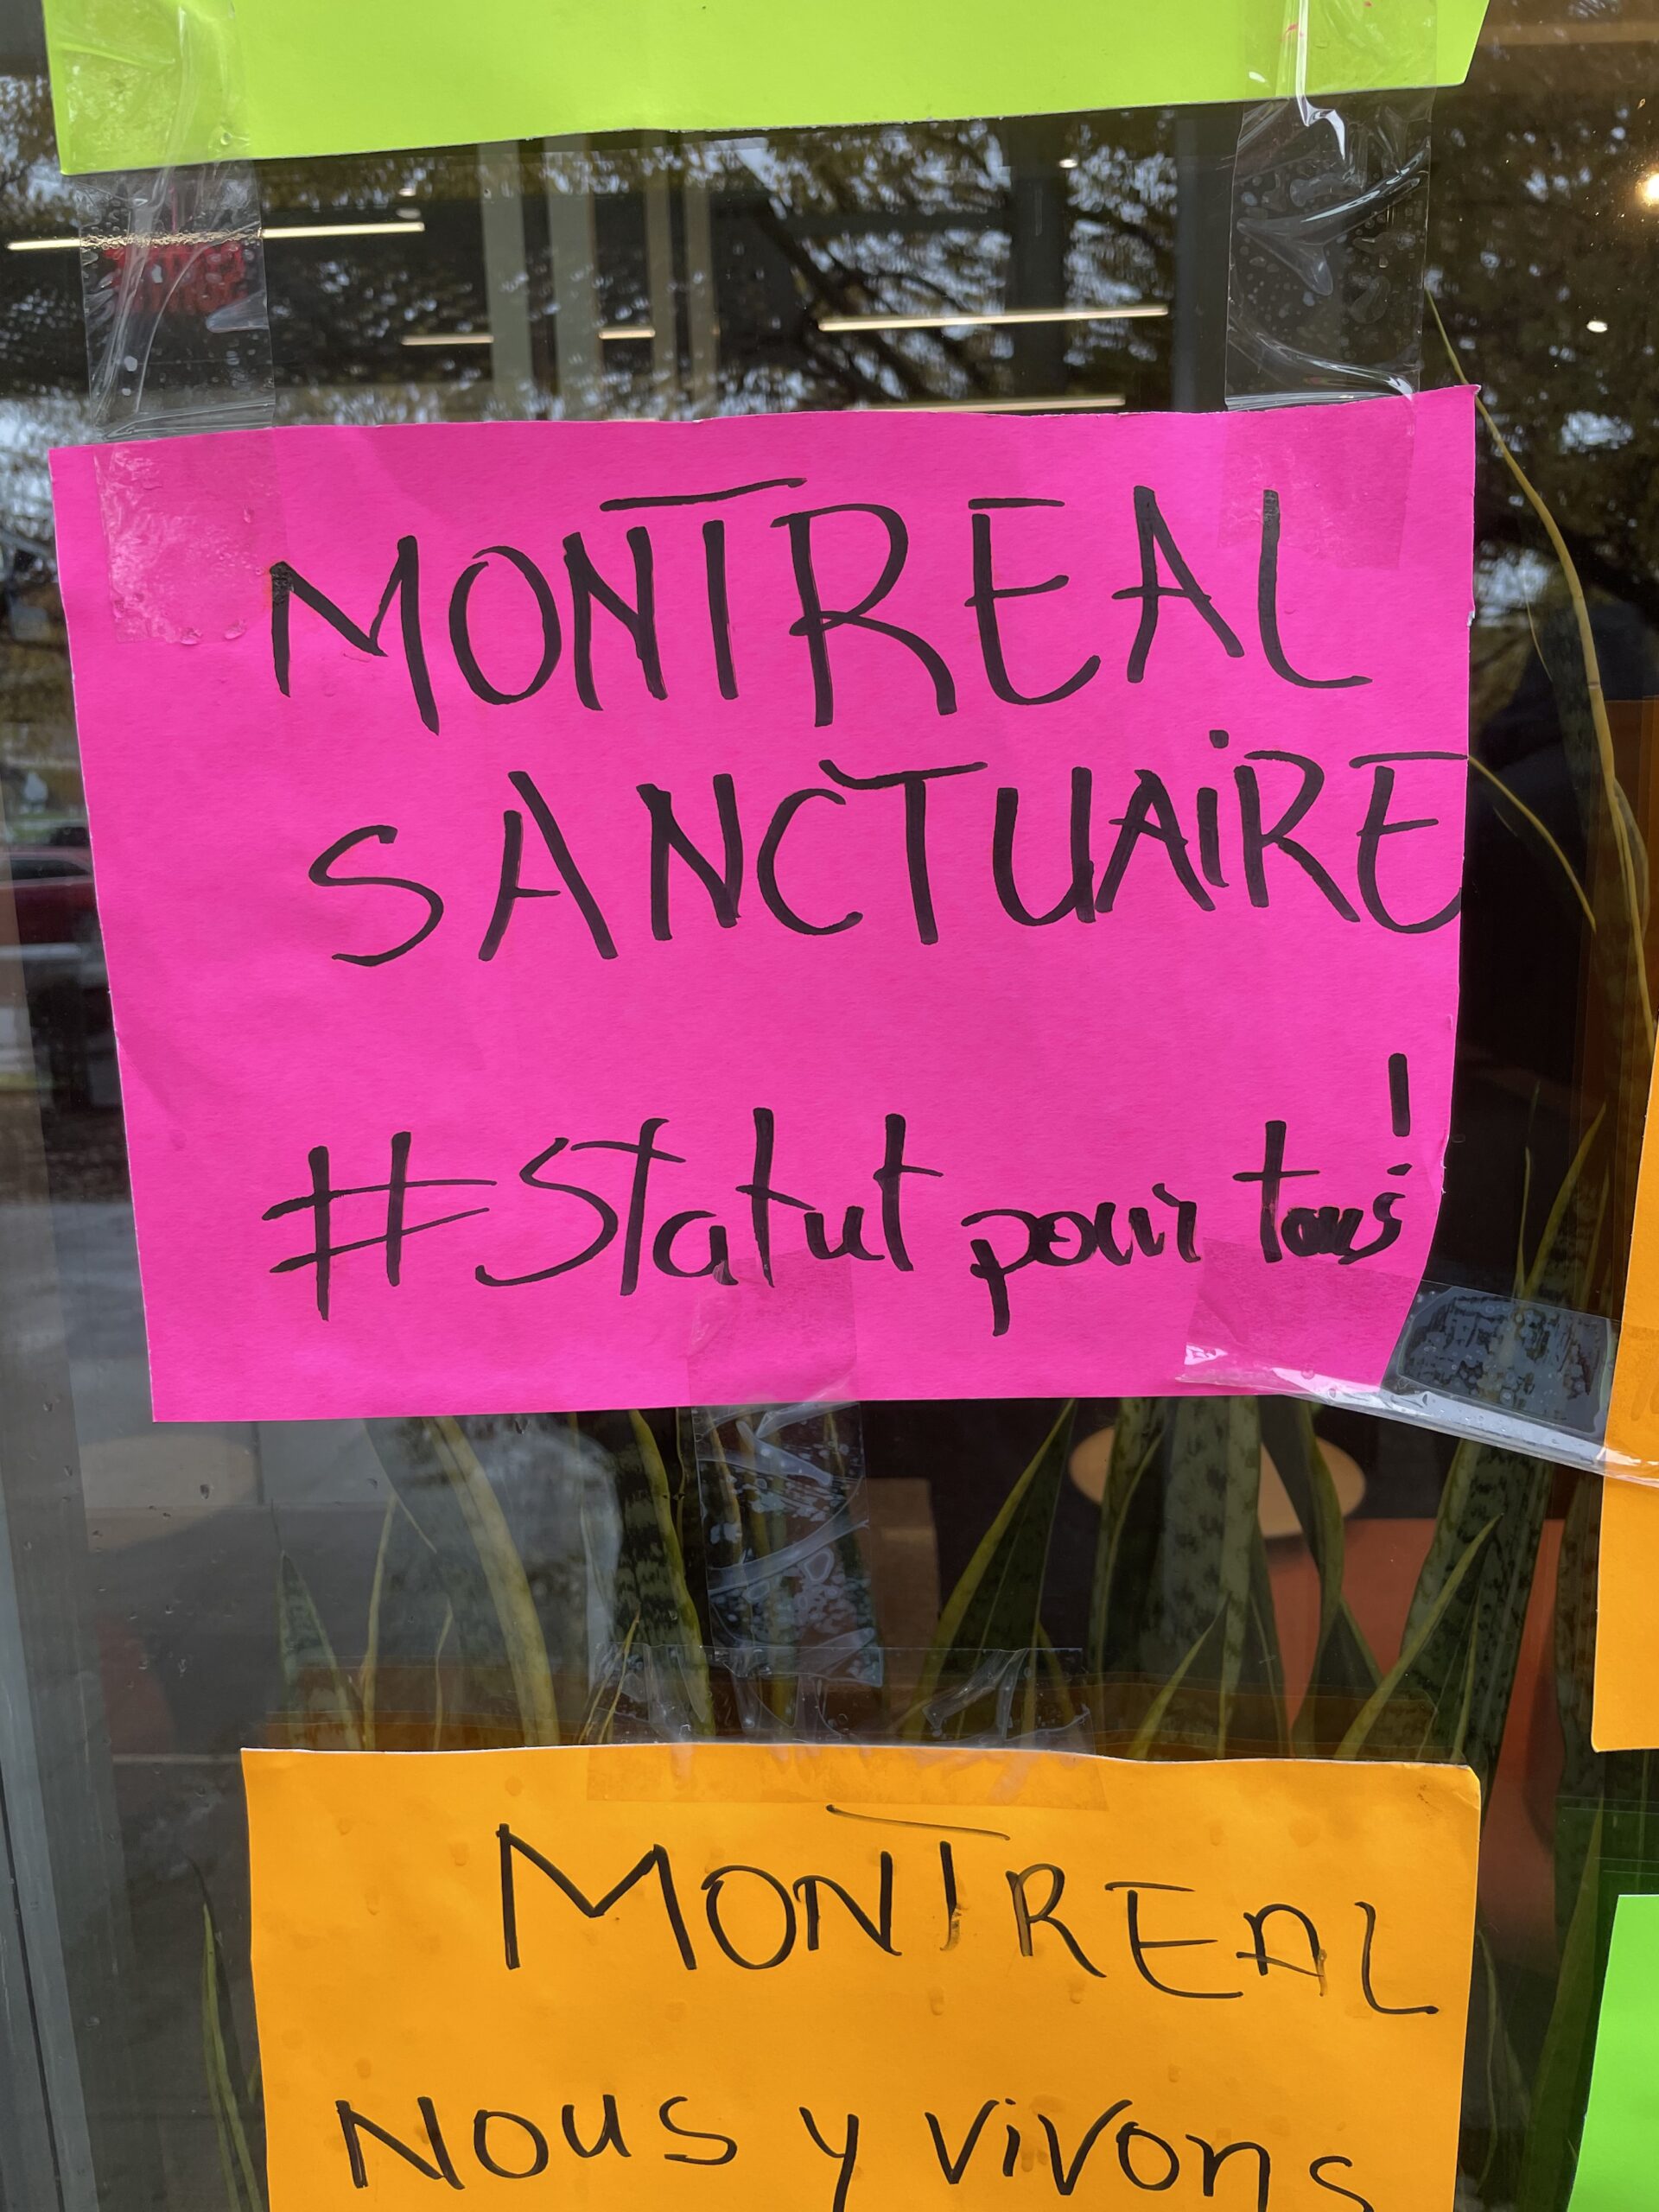 MONTREAL
SANCTUAIRE
#Statut pour tous!
MONTREAL
Nous y vivons